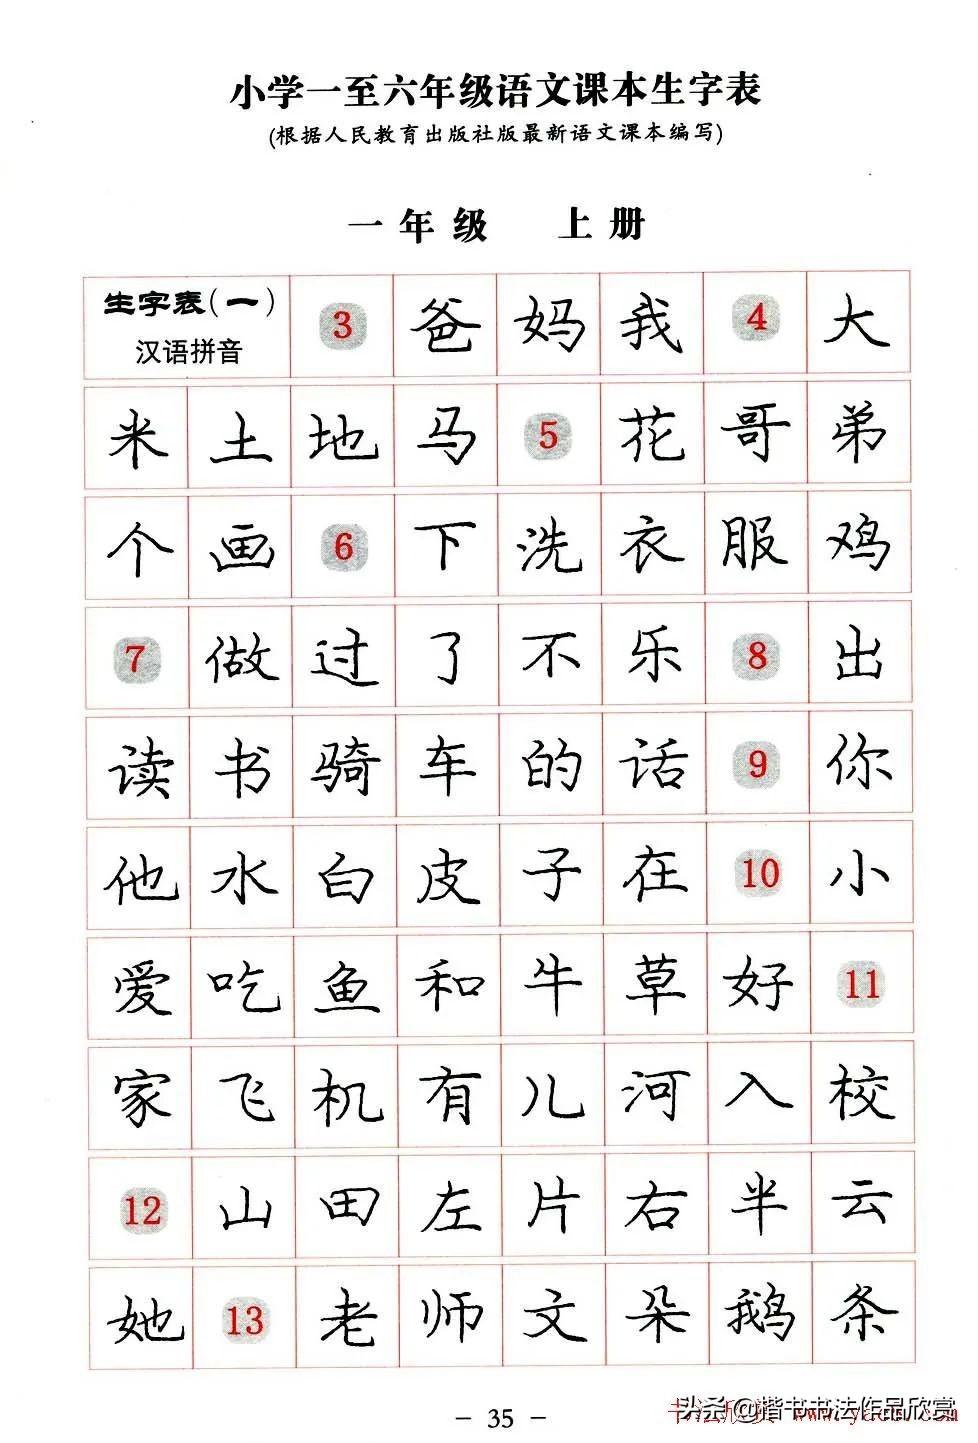 小学一至六年级语文课本生字表
(根据人民教育出版社版最新语文课本编写)
一年级 上册
生字表(一)
汉语拼音
3 爸 妈 我 4 大
米 土 地 马 5 花 哥 弟
个 画 6 下 洗 衣 服 鸡
7 做 过 了 不 乐 8 出
读 书 骑 车 的 话 9 你
他 水 白 皮 子 在 10 小
爱 吃 鱼 和 牛 草 好 11
家 飞 机 有 儿 河 入 校
12 山 田 左 片 右 半 云
她 13 老 师 文 朵 鹅 条
- 35 -
头条@楷书书法作品欣赏